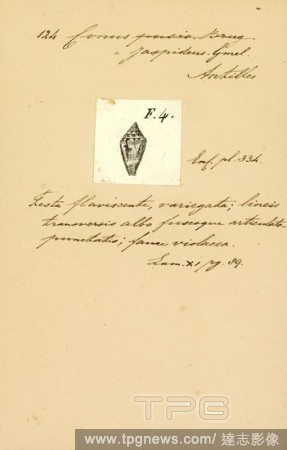 124 Conus pusio Brug
= jaspideus Gmel.
Antilles
F. 4.
Enf. pl. 334.
Testa flaviscente, variegata; lineis
transversis albo fuscoque articulato
punctatis; fauce violacea.
Lam. XI pg 89.
TPG
www.tpgnews.com | 達志影像